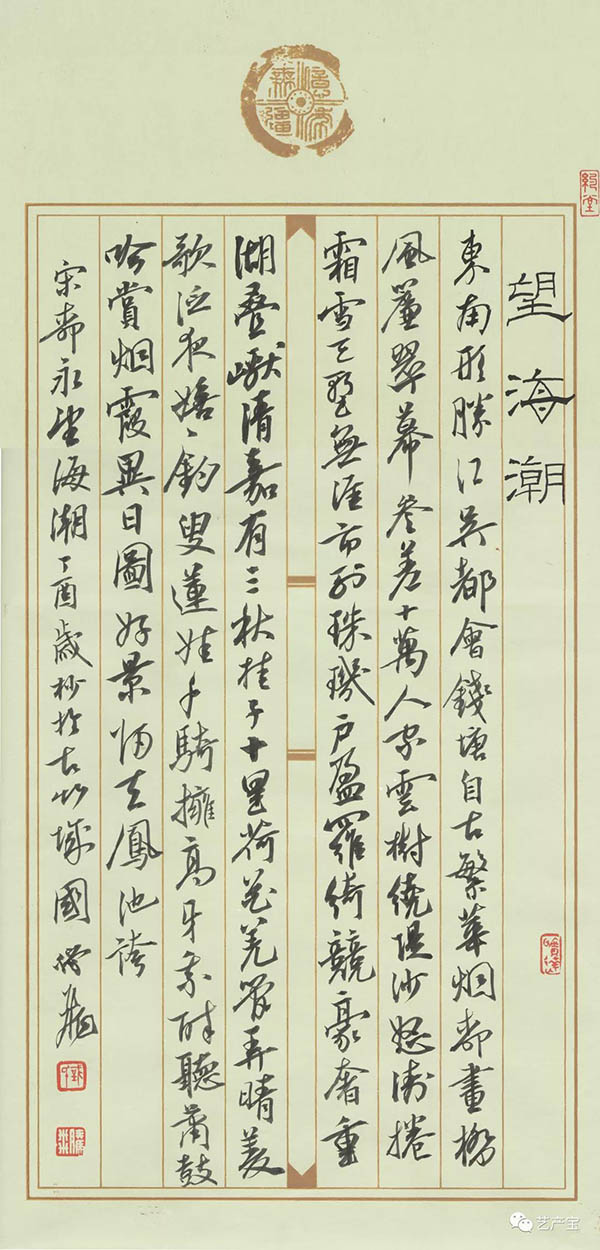 億年無疆
望海潮
東南形勝江吳都會錢塘自古繁華烟柳畫橋
風簾翠幕參差十萬人家雲樹繞堤沙怒濤捲
霜雪天塹無涯市列珠璣戶盈羅綺競豪奢重
湖疊巘清嘉有三秋桂子十里荷花羌管弄晴菱
歌泛夜嬉丶釣叟蓮娃千騎擁高牙乘醉聽簫鼓
吟賞烟霞異日圖好景歸去鳳池誇
宋柳永望海潮丁酉歲杪於古竹城國
艺产宝